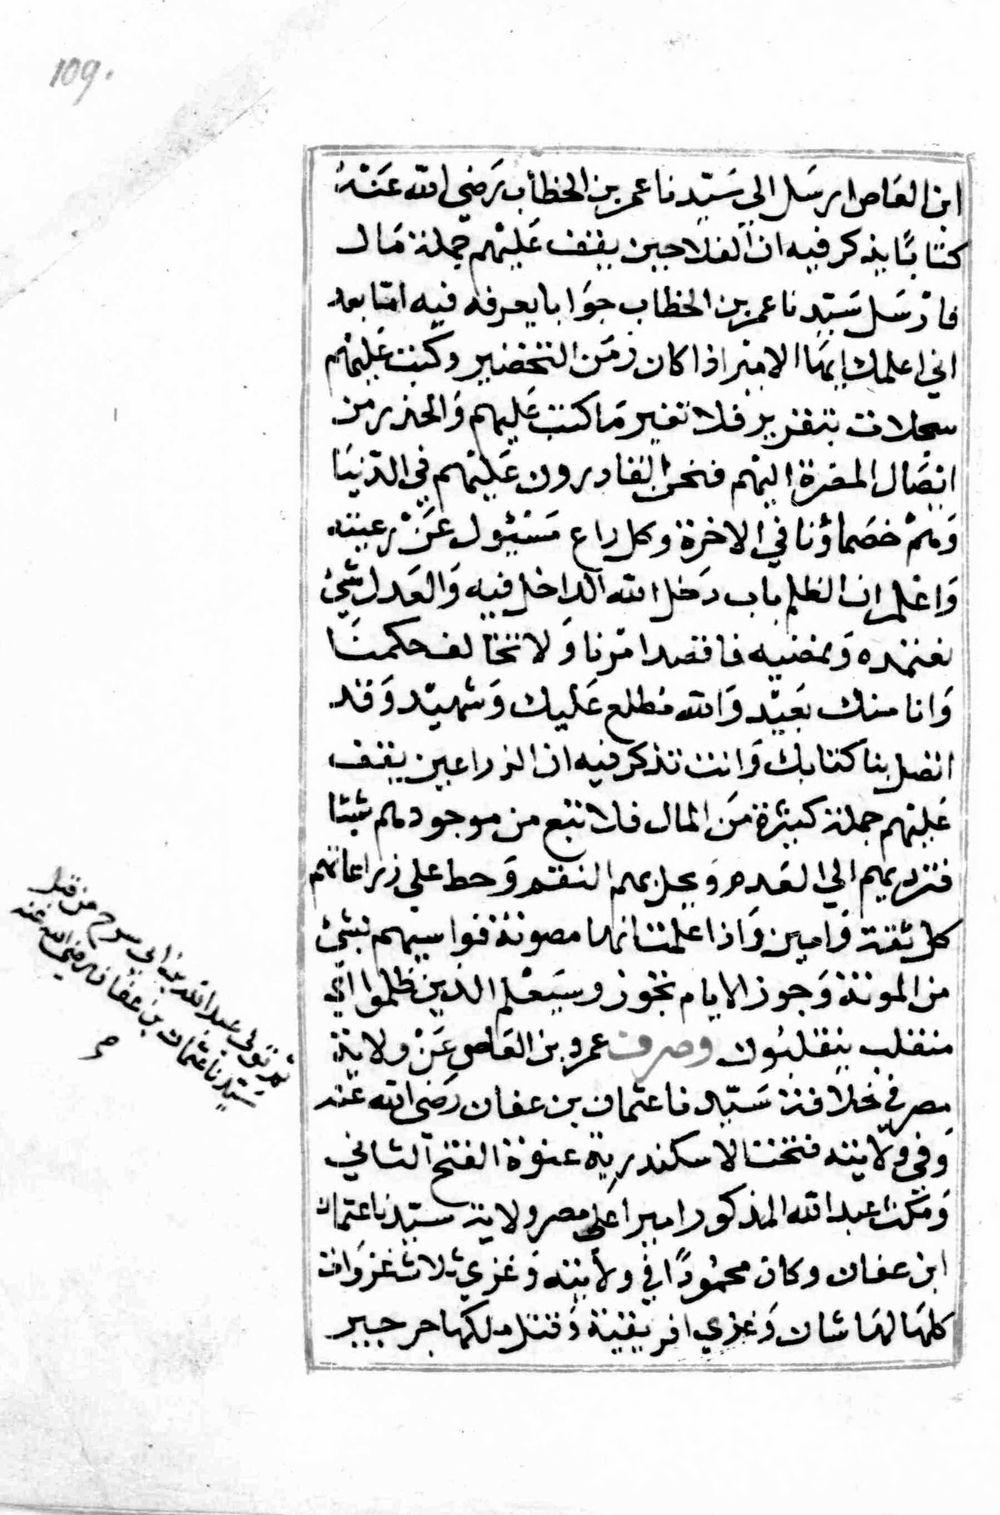 109.
ابن العاص ارسل الي سيدنا عمر بن الخطاب رضي الله عنه
كتابا يذكر فيه ان الفلاحين يقف عليهم جملة مال
فارسل سيدنا عمر بن الخطاب جوابا يعرفه فيه اما بعد
اني اعلمك ايها الامير اذا كان زمن التخضير وكتبت عليهم
سجلات بتقرير فلا تغير ما كتبت عليهم والحذر من
اتصال المضرة اليهم فنحن القادرون عليهم في الدنيا
وهم خصماؤنا في الاخرة وكل راع مسئول عن رعيته
واعلم ان الظلم باب دخل الله الداخل فيه والعدل شئ
نعتمده ونمضيه فاقصد امرنا ولا تخالف حكمنا
وانا منك بعيد والله مطلع عليك وشهيد وقد
اتصل بنا كتابك وانت تذكر فيه ان الزراعين يقف
عليهم جملة كبيرة من المال فلا تبع من موجودهم شيئا
فترديهم الي العدم ويحل بهم النقم وحط علي زراعاتهم
كل ثقة وامين واذا علمت انها مصونة فواسيهم بشئ
من المونة وجوز الايام تجوز وسيعلم الذين ظلموا اي
منقلب ينقلبون وصرف عمرو بن العاص عن ولاية
مصر في خلافة سيدنا عثمان بن عفان رضي الله عنه
وفي ولايته فتحت الاسكندرية عنوة الفتح الثاني
ومكث عبد الله المذكور اميرا علي مصر ولاية سيدنا عثمان
ابن عفان وكان محمودا في ولايته وغزي ثلاث غزوات
كلها لها شان وغزي افريقية وقتل ملكها جرجير
ثم تولى عبد الله بن ابي سرح من قبل
سيدنا عثمان بن عفان رضي الله عنه